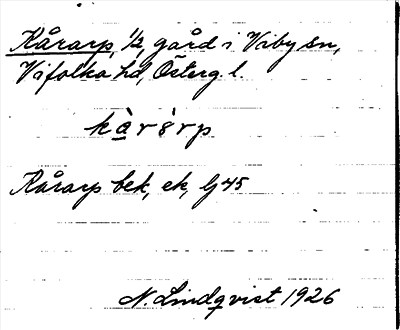 Kårarp, 1/2, gård i Viby sn,
Vifolka hd, Österg. l.
kàrərp
Kårarp bek, ek, lj 45
N. Lindqvist 1926